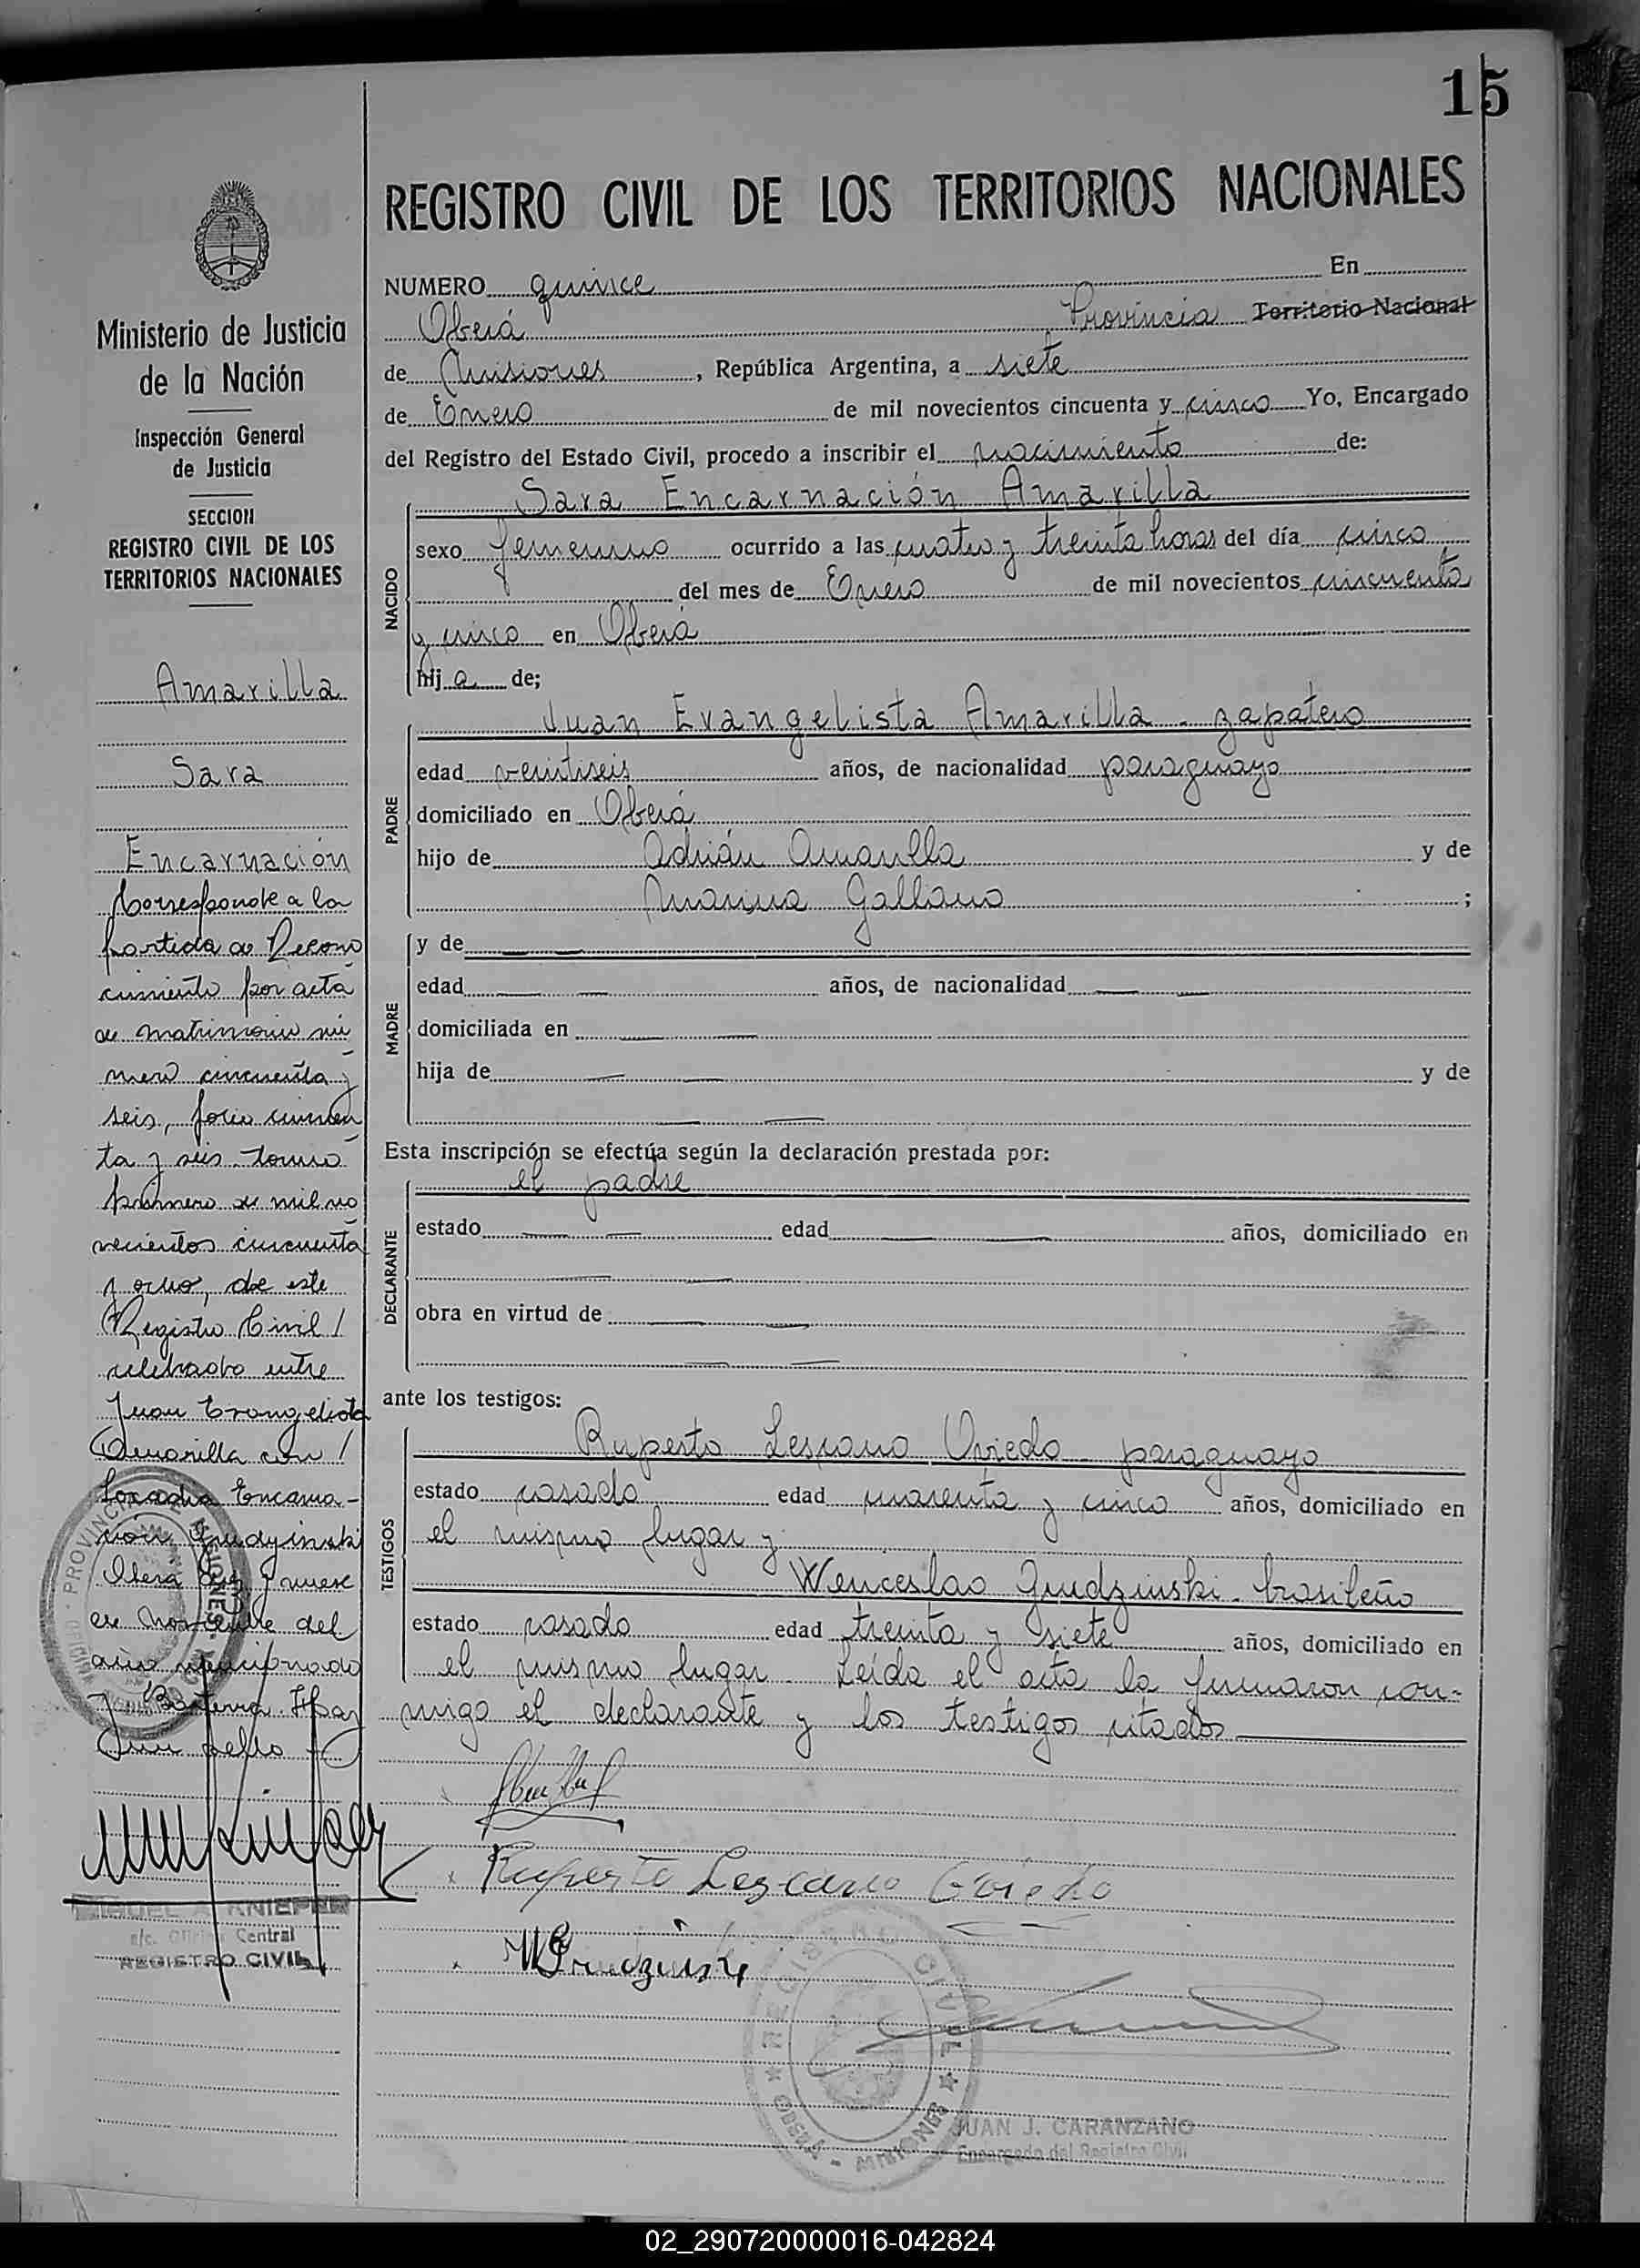 15
REGISTRO CIVIL DE LOS TERRITORIOS NACIONALES
NUMERO quince En
Oberá Provincia Territorio Nacional
de Misiones, República Argentina, a siete
de Enero de mil novecientos cincuenta y cinco Yo, Encargado
del Registro del Estado Civil, procedo a inscribir el nacimiento de:
NACIDO
Sara Encarnación Amarilla
sexo femenino ocurrido a las cuatro y treinta horas del día cinco
del mes de Enero de mil novecientos cincuenta
y cinco en Oberá
hija de;
PADRE
Juan Evangelista Amarilla - zapatero
edad veintiseis años, de nacionalidad paraguayo
domiciliado en Oberá
hijo de Adrián Amarilla y de
Marina Gallano ;
MADRE
y de
edad años, de nacionalidad
domiciliada en
hija de y de
Esta inscripción se efectúa según la declaración prestada por:
DECLARANTE
el padre
estado edad años, domiciliado en
obra en virtud de
ante los testigos:
TESTIGOS
Ruperto Lescano Oviedo - paraguayo
estado casado edad cuarenta y cinco años, domiciliado en
el mismo lugar y
Wenceslao Grudzinski - brasileño
estado casado edad treinta y siete años, domiciliado en
el mismo lugar. Leída el acta la firmaron con-
migo el declarante y los testigos citados
Ruperto Lezcano Oviedo
W Grudzinski
REGISTRO CIVIL
OBERA - MISIONES
JUAN J. CARANZANO
Encargado del Registro Civil
Ministerio de Justicia
de la Nación
Inspección General
de Justicia
SECCION
REGISTRO CIVIL DE LOS
TERRITORIOS NACIONALES
Amarilla
Sara
Encarnación
Corresponde a la
partida de Recono
cimiento por acta
de matrimonio nú
mero cincuenta y
seis, folio cincuen
ta y seis tomo
primero de mil no
vecientos cincuenta
y ocho, de este
Registro Civil /
celebrado entre
Juan Evangelista
Amarilla con /
Encarna-
ción Grudzinski
Oberá diez y nueve
de Noviembre del
año mencionado
PROVINCIA MISIONES
MIGUEL A. KNIEPER
a/c. Oficina Central
REGISTRO CIVIL
02_290720000016-042824